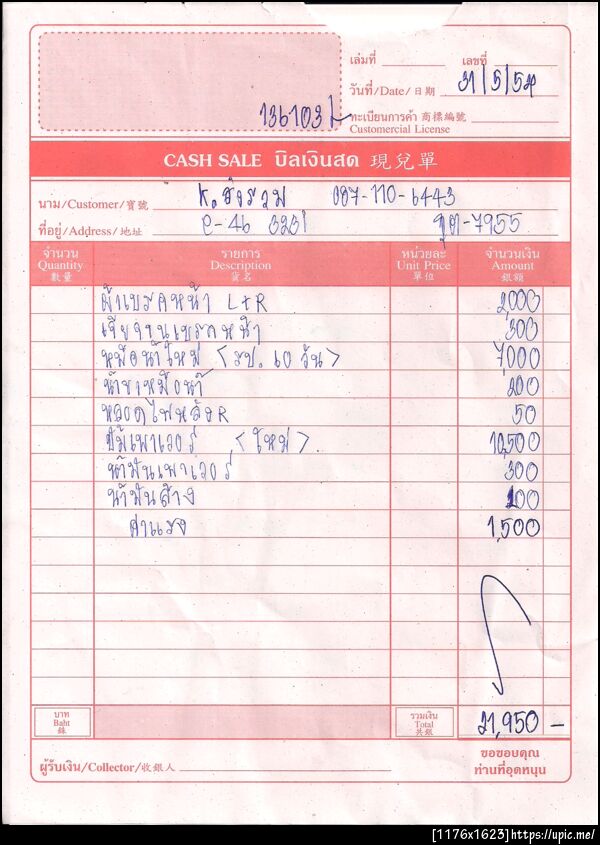 เล่มที่ เลขที่
วันที่/Date/日期 31/5/54
136103
ทะเบียนการค้า 商標編號
Customercial License
CASH SALE บิลเงินสด 現兌單
นาม/Customer/寶號 K. 087-110-6443
ที่อยู่/Address/地址 e-46 323i 7955
จำนวน รายการ หน่วยละ จำนวนเงิน
Quantity Description Unit Price Amount
數量 貨名 單位 銀額
ผ้าเบรคหน้า L+R 2,000
เจียจานเบรคหน้า 300
หม้อน้ำใหม่ <รป. 60 วัน> 7,000
น้ำยาหม้อน้ำ 200
หลอดไฟหลังR 50
ปั้มเพาเวอร์ <ใหม่> 10,500
น้ำมันเพาเวอร์ 300
น้ำมันล้าง 100
ค่าแรง 1,500
บาท รวมเงิน
Baht Total 21,950 -
銖 共銀
ผู้รับเงิน/Collector/收銀人
ขอขอบคุณ
ท่านที่อุดหนุน
[1176x1623]https://upic.me/